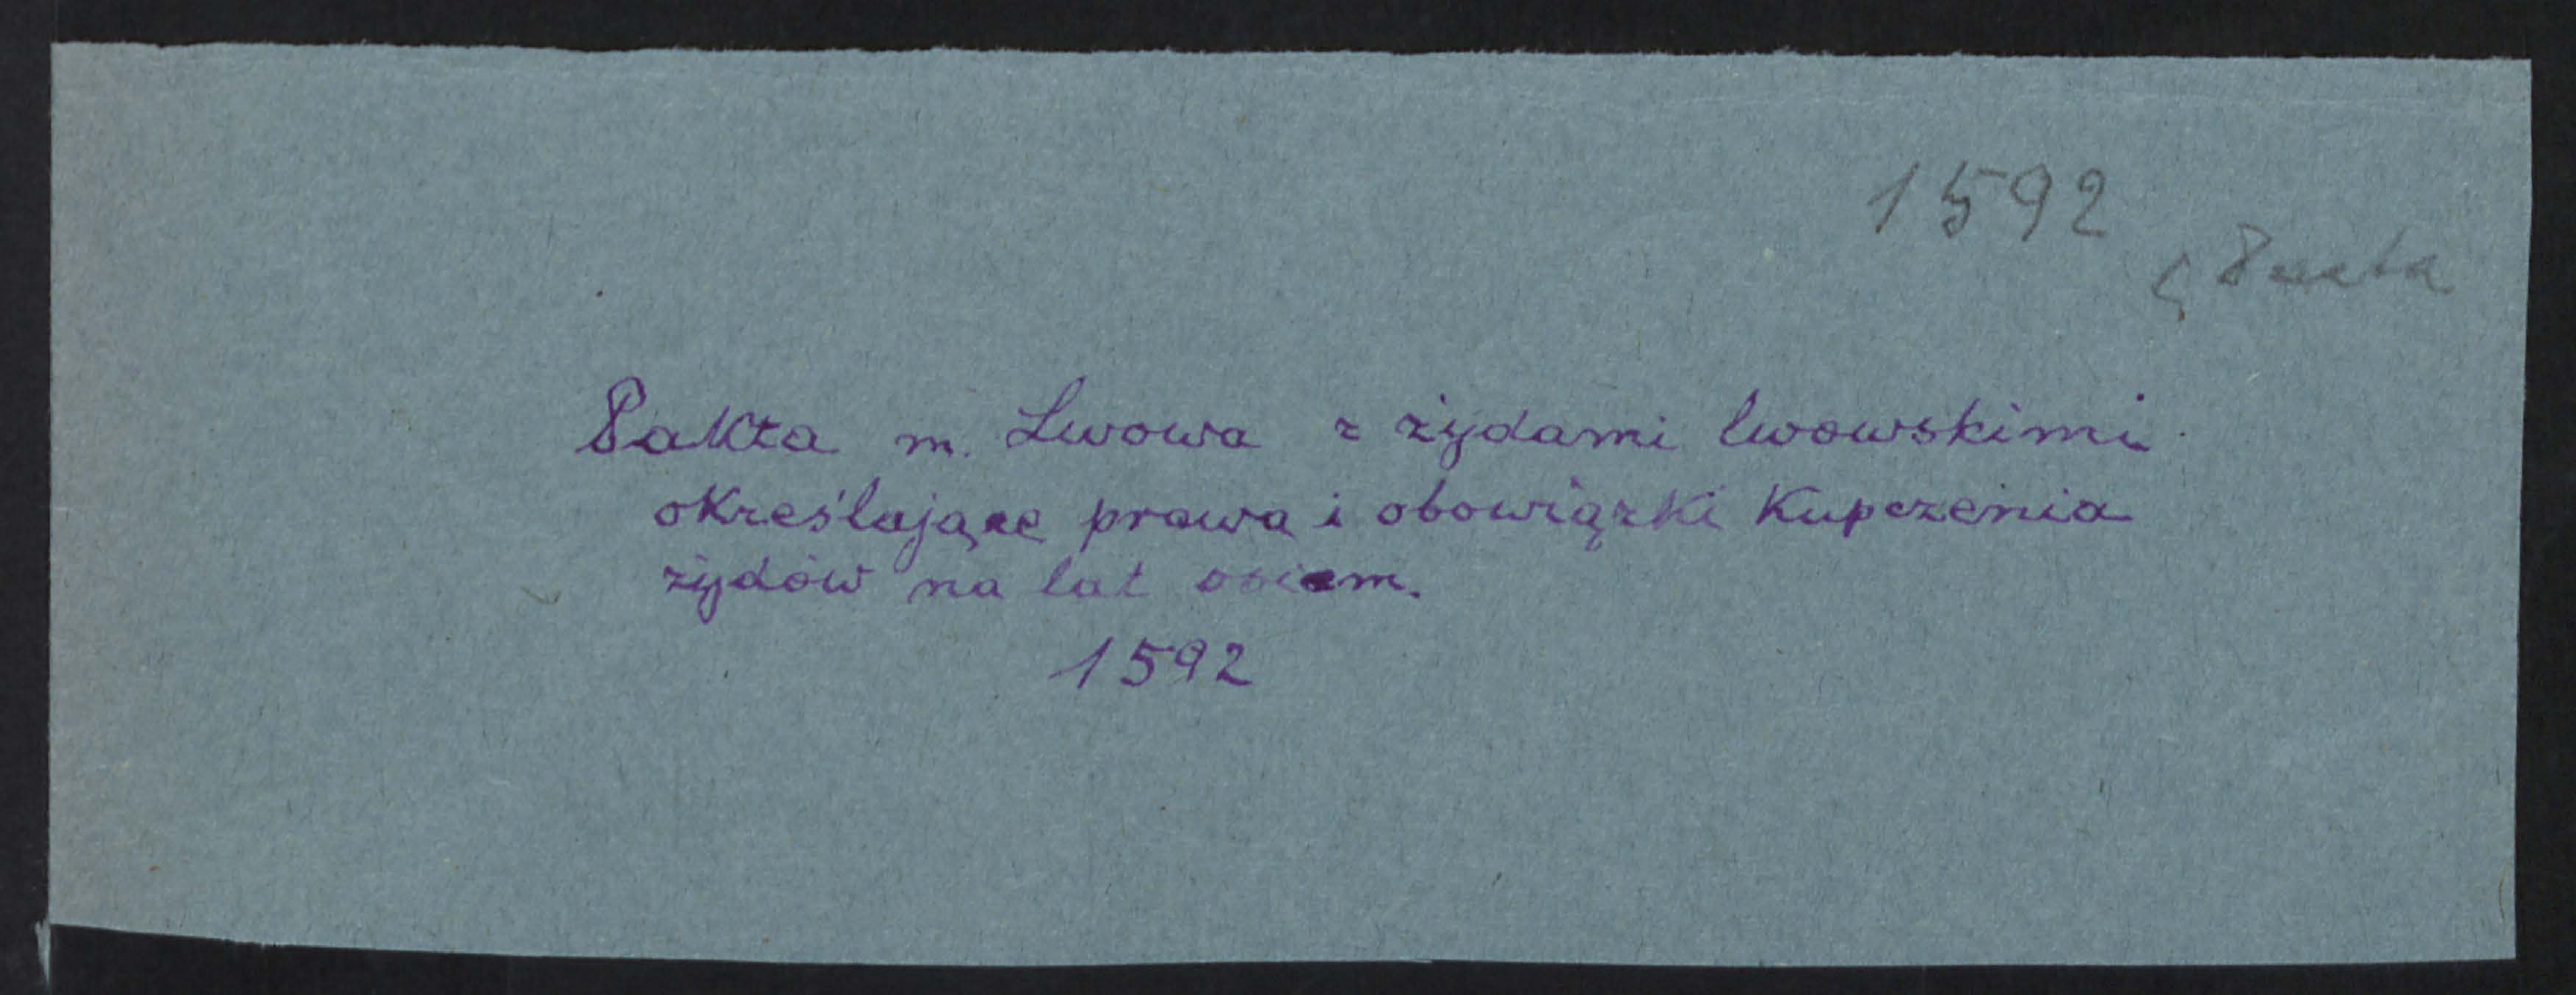 1592
Pakta
Pakta m. Lwowa z żydami lwowskimi
określające prawa i obowiązki Kupczenia
żydów na lat osiem.
1592